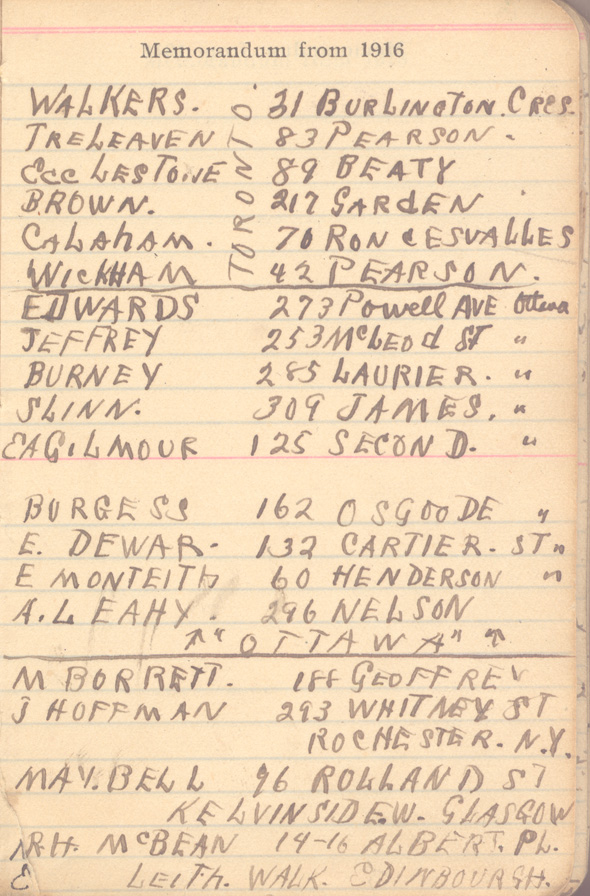 Memorandum from 1916
WALKERS. 31 BURLINGTON. CRES.
TRELEAVEN 83 PEARSON.
ECCLESTONE 89 BEATY
BROWN. 217 GARDEN
CALAHAM. 70 RONCESVALLES
WICKHAM 42 PEARSON.
TORONTO
EDWARDS 273 Powell AVE Ottawa
JEFFREY 253 McLEOd ST "
BURNEY 285 LAURIER. "
SLINN. 309 JAMES. "
EA GILMOUR 125 SECOND. "
BURGESS 162 OSGOODE "
E. DEWAR. 132 CARTIER. ST "
E MONTEITH 60 HENDERSON "
A. LEAHY. 296 NELSON
" OTTAWA "
M BORRETT. 188 GEOFFREY
J HOFFMAN 293 WHITNEY ST
ROCHESTER. N.Y.
MAY. BELL 96 ROLLAND ST
KELVINSIDE. W. GLASGOW
R.H. McBEAN 14-16 ALBERT. PL.
LEITH. WALK. EDINBOURGH.